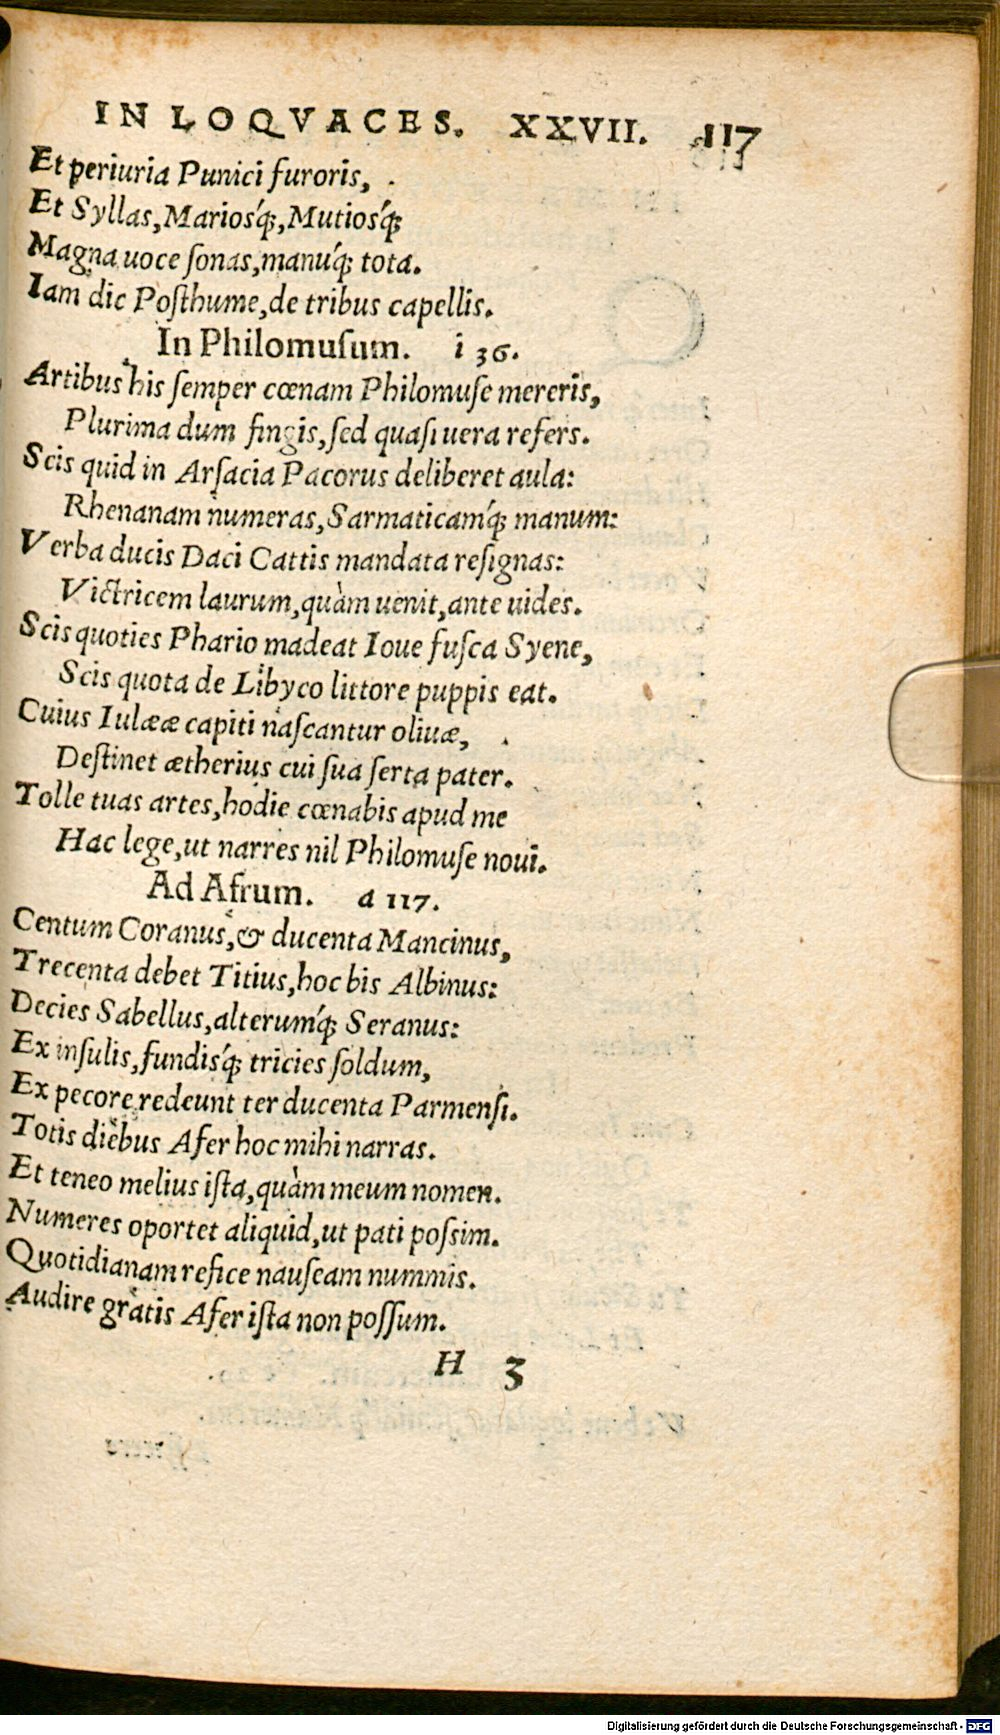 IN LOQVACES. XXVII. 117
Et periuria Punici furoris,
Et Syllas, Mariosq́;, Mutiosq́;
Magna uoce ſonas, manuq́; tota.
Iam dic Poſthume, de tribus capellis.
In Philomuſum. i 36.
Artibus his ſemper cœnam Philomuſe mereris,
Plurima dum fingis, ſed quaſi uera refers.
Scis quid in Arſacia Pacorus deliberet aula:
Rhenanam numeras, Sarmaticamq́; manum:
Verba ducis Daci Cattis mandata reſignas:
Victricem laurum, quàm uenit, ante uides.
Scis quoties Phario madeat Ioue fuſca Syene,
Scis quota de Libyco littore puppis eat.
Cuius Iulææ capiti naſcantur oliuæ,
Deſtinet ætherius cui ſua ſerta pater.
Tolle tuas artes, hodie cœnabis apud me
Hac lege, ut narres nil Philomuſe noui.
Ad Afrum. d 117.
Centum Coranus, & ducenta Mancinus,
Trecenta debet Titius, hoc bis Albinus:
Decies Sabellus, alterumq́; Seranus:
Ex inſulis, fundisq́; tricies ſoldum,
Ex pecore redeunt ter ducenta Parmenſi.
Totis diebus Afer hoc mihi narras.
Et teneo melius iſta, quàm meum nomen.
Numeres oportet aliquid, ut pati poſsim.
Quotidianam refice nauſeam nummis.
Audire gratis Afer iſta non poſſum.
H 3
Digitalisierung gefördert durch die Deutsche Forschungsgemeinschaft - DFG